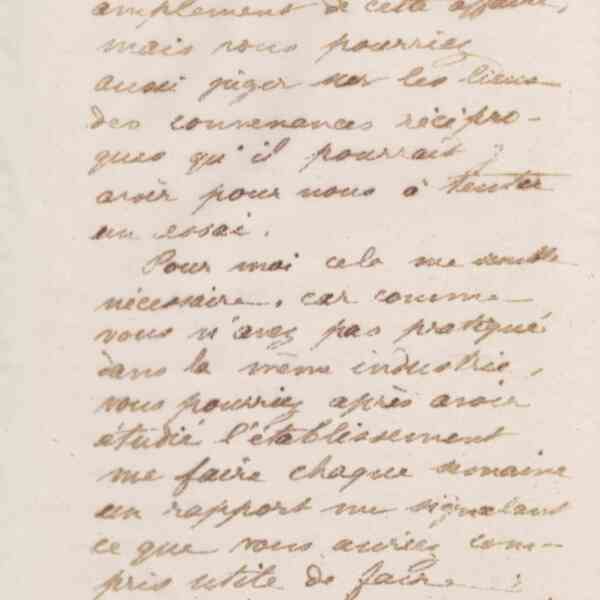 amplement de cette affaire,
mais vous pourriez
aussi juger sur les lieux
des convenances récipro-
ques qu'il pourrait y
avoir pour nous à tenter
un essai.
Pour moi cela me semble
nécessaire, car comme
vous n'avez pas pratiqué
dans la même industrie,
vous pourriez après avoir
étudié l'établissement
me faire chaque semaine
un rapport me signalant
ce que vous auriez com-
pris utile de faire :